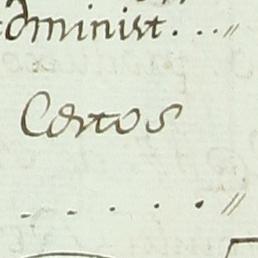 administ... "
Certos
. . . . . "